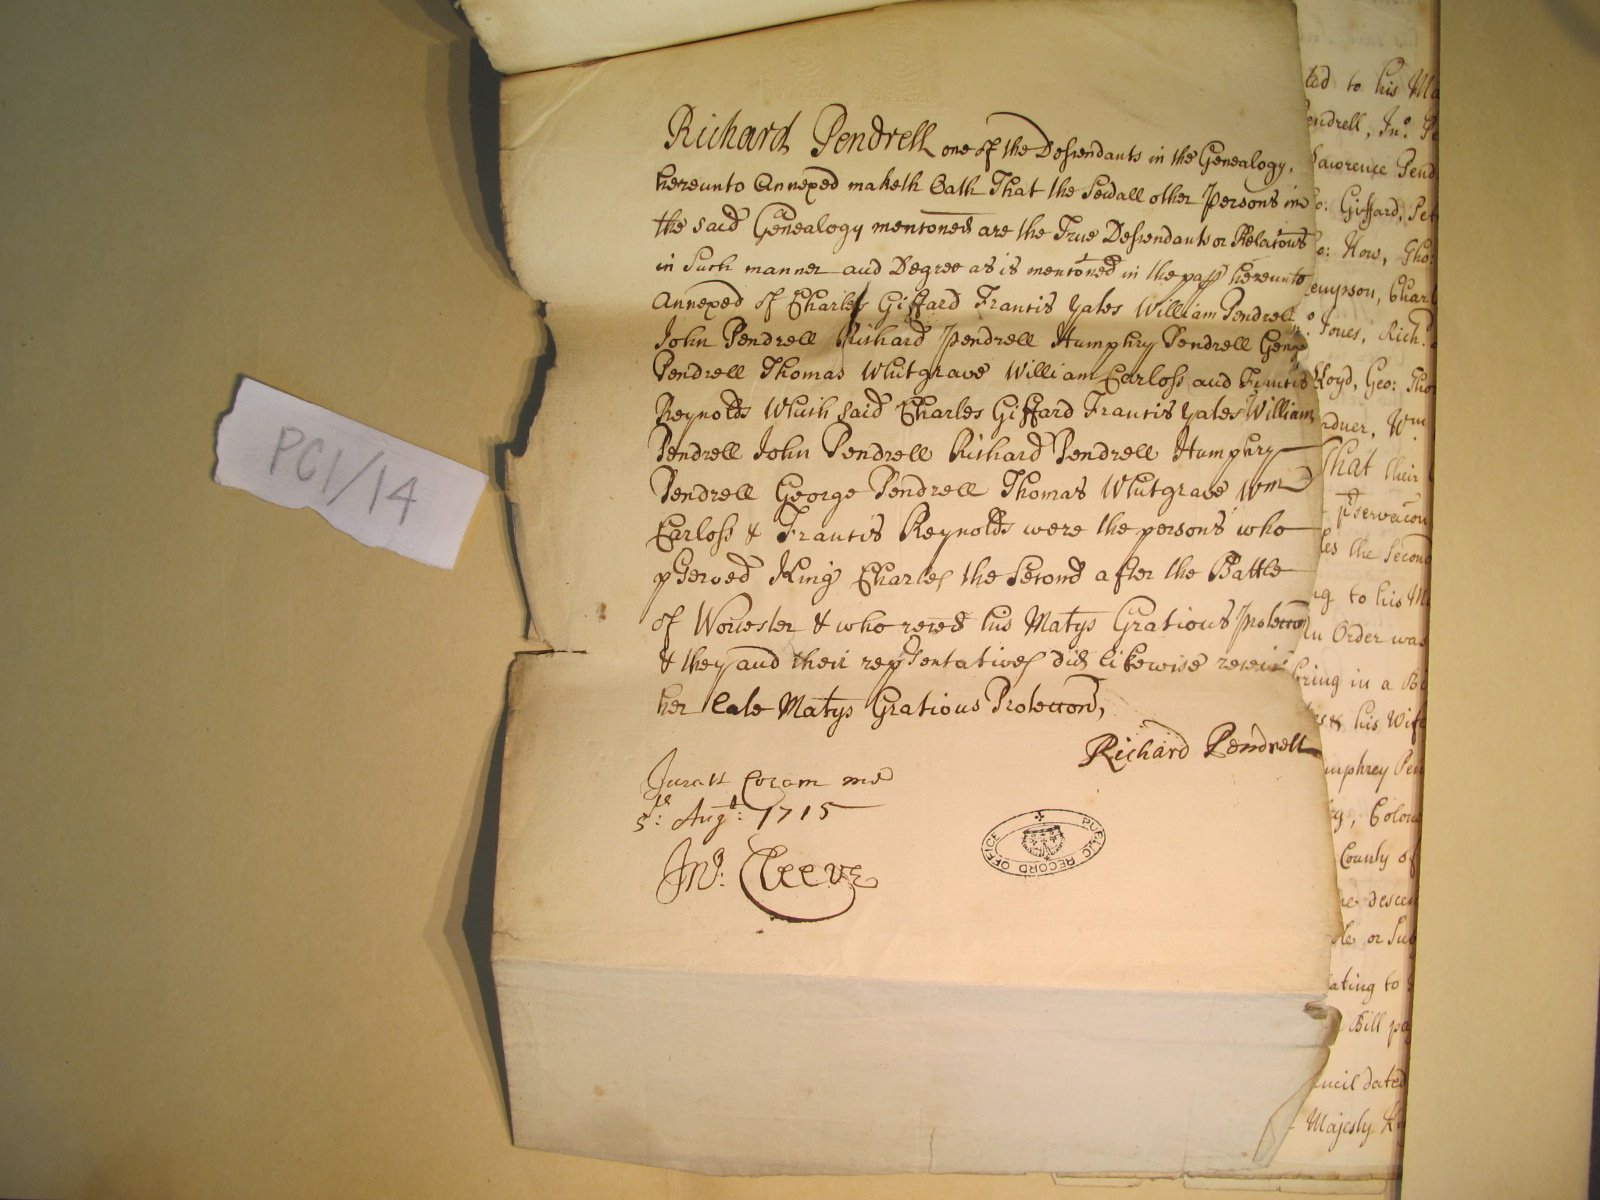 Richard Pendrell one of the Desendants in the Genealogy,
hereunto Annexed maketh Oath That the Sevall other Persons in
the said Genealogy mentoned are the True Desendants or Relations
in Such manner and Degree as is mentoned in the pap hereunto
Annexed of Charles Giffard Francis Yates William Pendrell
John Pendrell Richard Pendrell Humphry Pendrell George
Pendrell Thomas Whitgrave William Carloss and Francis
Reynolds Which said Charles Giffard Francis Yates William
Pendrell John Pendrell Richard Pendrell Humphry
Pendrell George Pendrell Thomas Whitgrave Wm
Carloss & Francis Reynolds were the persons who
pserved King Charles the Second after the Battle
of Worcester & who reced his Matys Gratious Proteccon
& they and their repsentatives did likewise receive
her late Matys Gratious Proteccon,
Richard Pendrell
Jurat Coram me
5th: Augt: 1715
Jno: Cleeve
PUBLIC RECORD OFFICE
PC1/14
ted to his Ma
endrell, Jno. Pe
Lawrence Pend
o: Giffard, Pet
o: How, Tho:
empson, Charl
Jones, Richd.
Lloyd, Geo: Tho
rdner, Wm
That their
pservacon
les the Second
ng to his M
An Order was
bring in a B
& his Wife
mphrey Pen
ey, Colon
County of
he descen
le or Sub
ating to
Bill pa
uncil dated
Majesty K